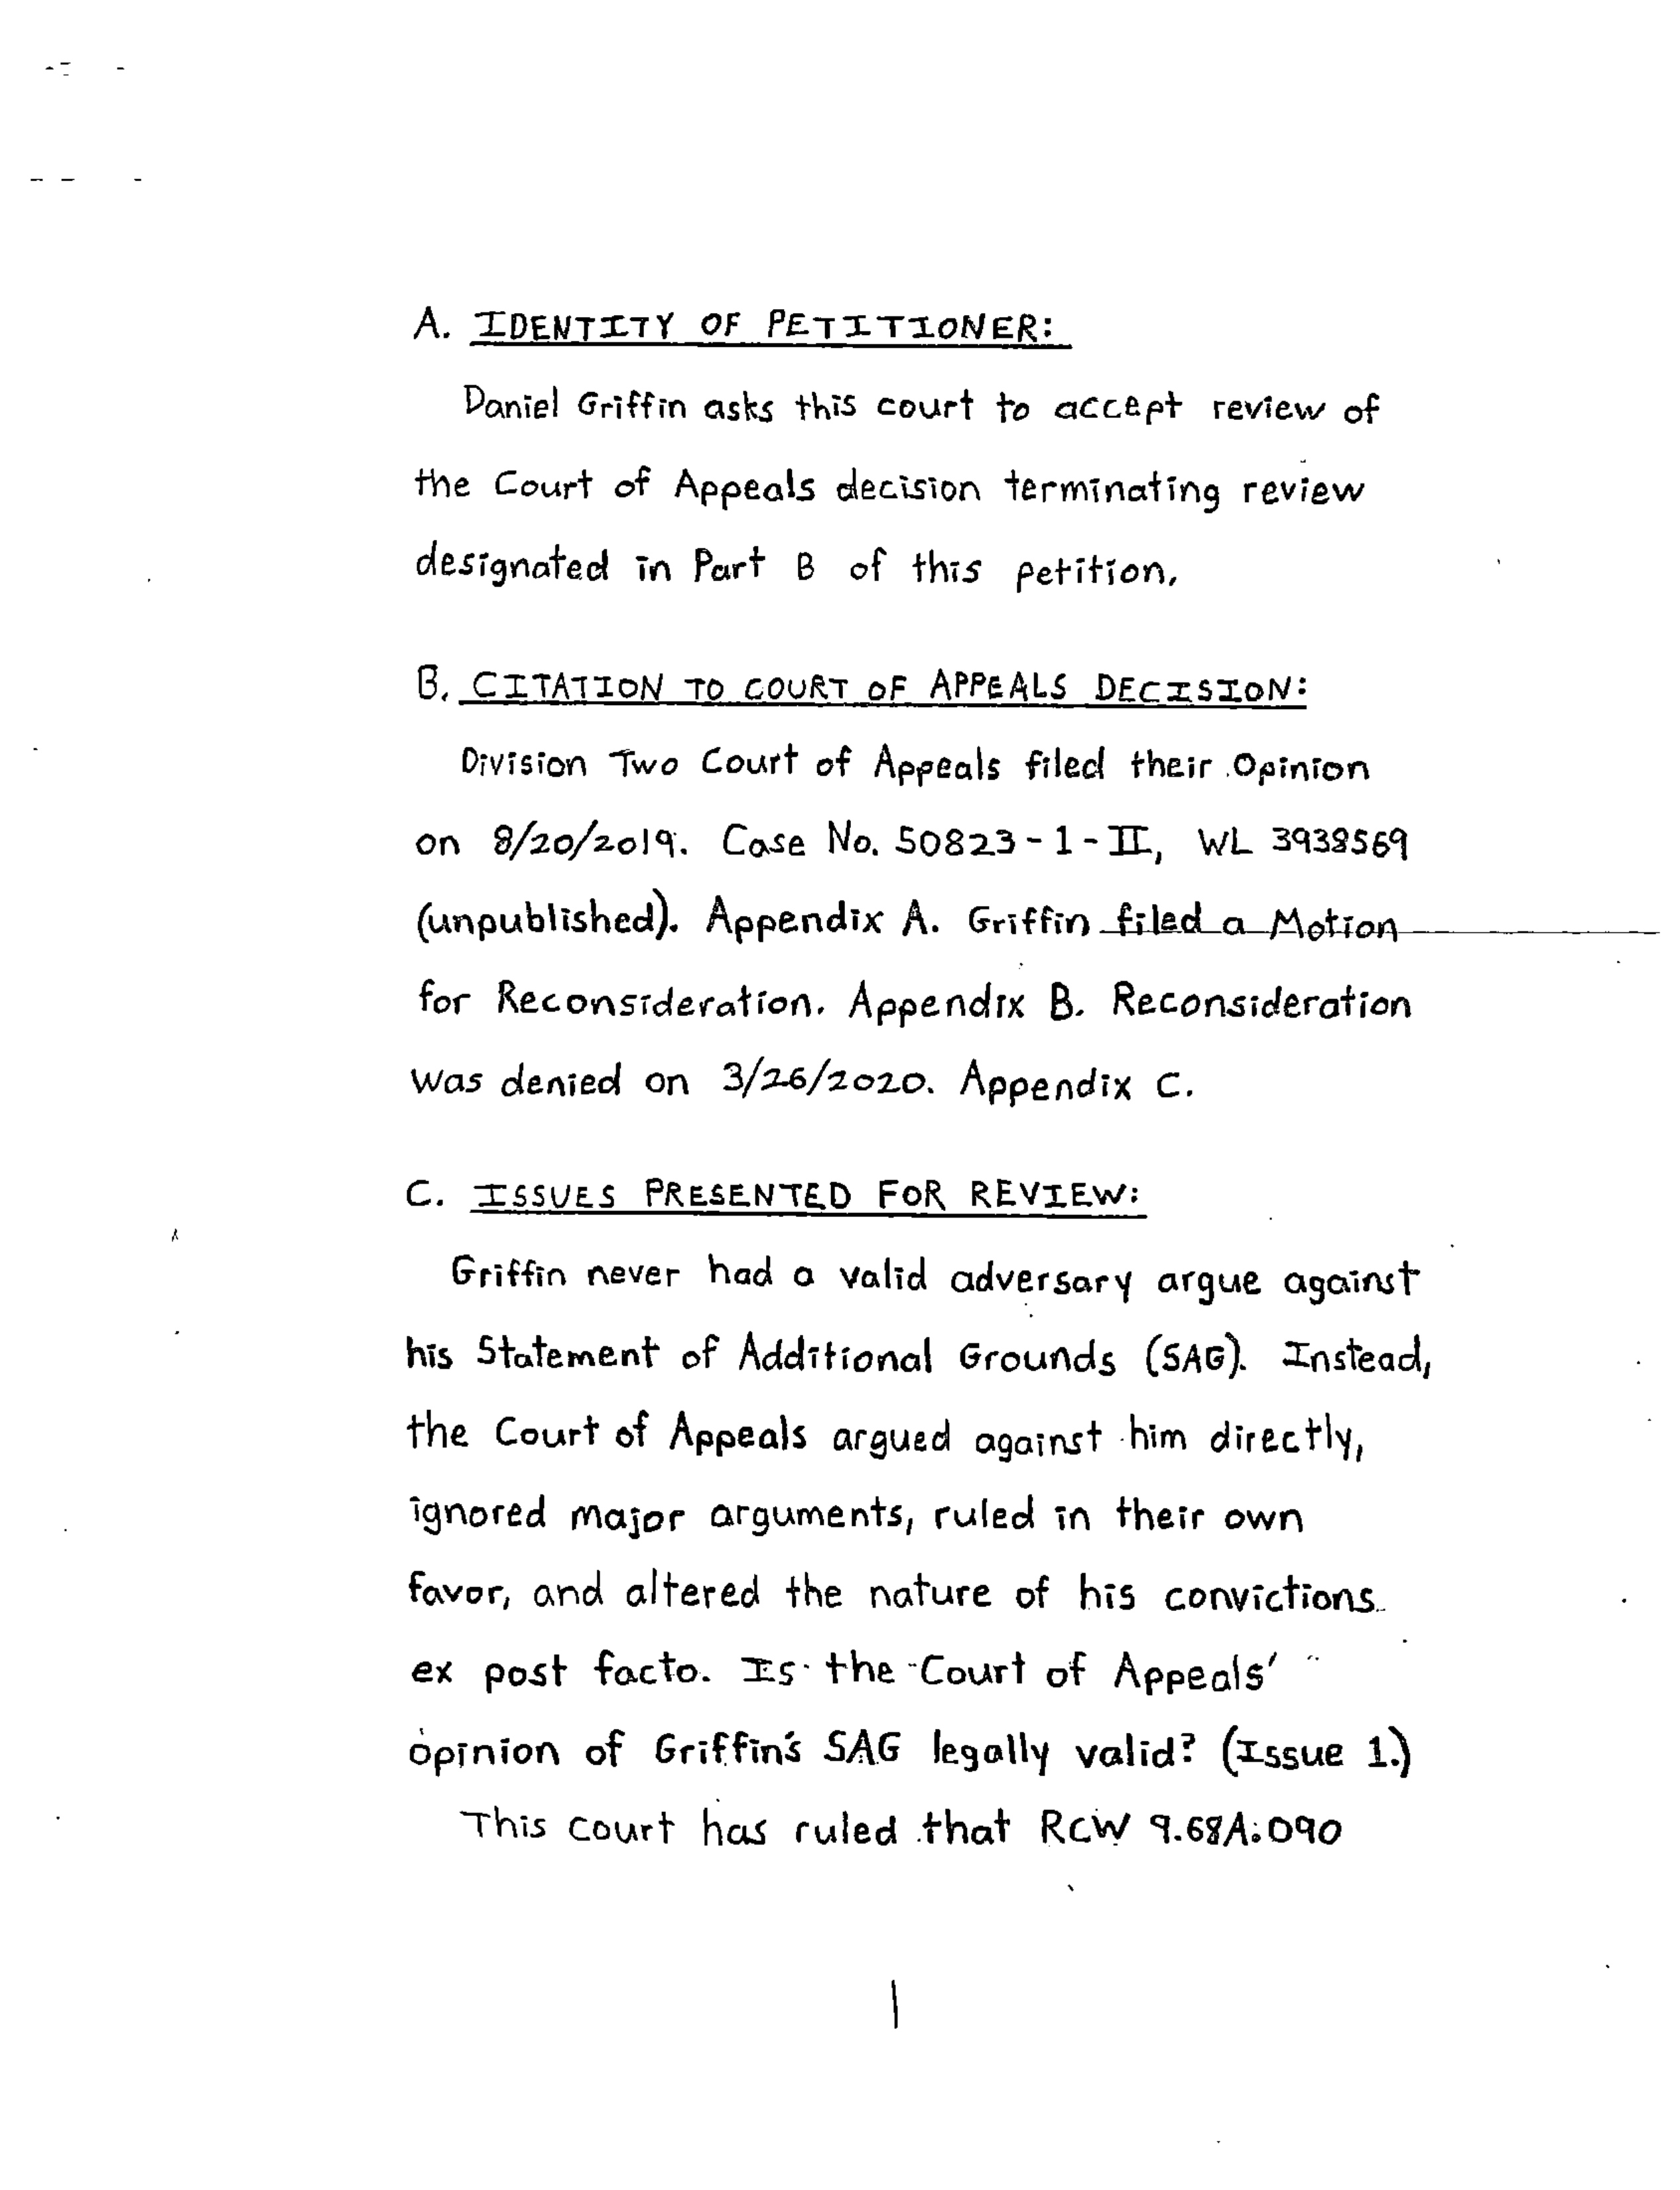 A. IDENTITY OF PETITIONER:
Daniel Griffin asks this court to accept review of
the Court of Appeals decision terminating review
designated in Part B of this petition.
B. CITATION TO COURT OF APPEALS DECISION:
Division Two Court of Appeals filed their Opinion
on 8/20/2019. Case No. 50823-1-II, WL 3938569
(unpublished). Appendix A. Griffin filed a Motion
for Reconsideration. Appendix B. Reconsideration
was denied on 3/26/2020. Appendix C.
C. ISSUES PRESENTED FOR REVIEW:
Griffin never had a valid adversary argue against
his Statement of Additional Grounds (SAG). Instead,
the Court of Appeals argued against him directly,
ignored major arguments, ruled in their own
favor, and altered the nature of his convictions
ex post facto. Is the Court of Appeals'
opinion of Griffin's SAG legally valid? (Issue 1.)
This court has ruled that RCW 9.68A.090
1